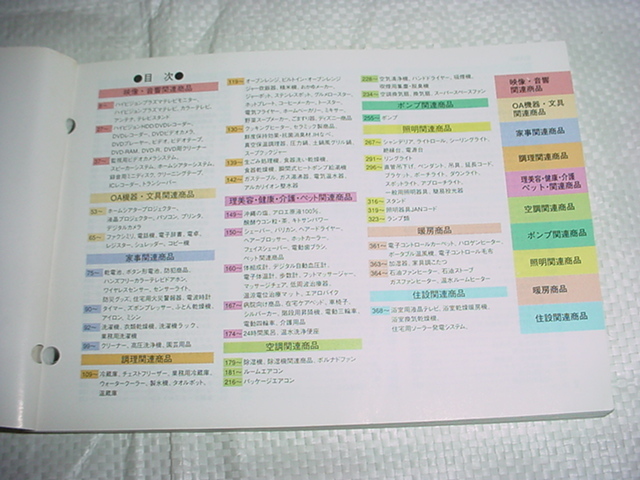 ●目 次●
映像・音響関連商品
ハイビジョンプラズマテレビモニター、
ハイビジョンプラズマテレビ、カラーテレビ、
アンテナ、テレビスタンド
27〜 ハイビジョンHDD/DVDレコーダー、
DVDレコーダー、DVDビデオカメラ、
DVDプレーヤー、ビデオ、ビデオテープ、
DVD-RAM、DVD-R、DVD用クリーナー
監視用ビデオカメラシステム、
スピーカーシステム、ホームシアターシステム、
録音用ミニディスク、クリーニングテープ、
ICレコーダー、トランシーバー
OA機器・文具関連商品
53〜 ホームシアタープロジェクター、
液晶プロジェクター、パソコン、プリンタ、
デジタルカメラ
65〜 ファクシミリ、電話機、電子辞書、電卓、
レジスター、シュレッダー、コピー機
家事関連商品
75〜 乾電池、ボタン形電池、防犯商品、
ハンズフリーカラーテレビドアホン、
ワイヤレスセンサー、センサーライト、
防災グッズ、住宅用火災警報器、電波時計
タイマー、ズボンプレッサー、ふとん乾燥機、
アイロン、ミシン
洗濯機、衣類乾燥機、洗濯機ラック、
業務用洗濯機
クリーナー、高圧洗浄機、園芸用品
調理関連商品
109〜 冷蔵庫、チェストフリーザー、業務用冷蔵庫、
ウォータークーラー、製氷機、タオルポット、
温蔵庫
119〜 オーブンレンジ、ビルトイン・オーブンレンジ
ジャー炊飯器、精米機、おかゆメーカー、
ジャーポット、ステンレスポット、グリル・ロースター、
ホットプレート、コーヒーメーカー、トースター、
電気フライヤー、ホームベーカリー、ミキサー、
野菜スープメーカー、ごますり器、ディズニー商品
130〜 クッキングヒーター、セラミック製商品、
鮮度保持効果・抗菌素材JHSくん、
真空保温調理器、圧力鍋、土鍋風グリル鍋、
スープクックジャー
139〜 生ごみ処理機、食器洗い乾燥機、
食器乾燥機、瞬間式ヒートポンプ給湯機
142〜 ガステーブル、ガス湯沸器、電気温水器、
アルカリイオン整水器
理美容・健康・介護・ペット関連商品
149〜 沖縄の塩、アロエ原液100%、
醗酵ウコン粒・茶、キトサンパワー
150〜 シェーバー、バリカン、ヘアードライヤー、
ヘアーブロッサー、ホットカーラー、
フェイスシェーバー、電動歯ブラシ、
ペット関連商品
160〜 体組成計、デジタル自動血圧計、
電子体温計、歩数計、フットマッサージャー、
マッサージチェア、低周波治療器、
温浴電位治療マット、エアロバイク
167〜 病院向け商品、在宅ケアベッド、車椅子、
シルバーカー、階段用昇降機、電動三輪車、
電動四輪車、介護用品
174〜 24時間風呂、温水洗浄便座
空調関連商品
179〜 除湿機、除湿機関連商品、ポルナドファン
181〜 ルームエアコン
216〜 パッケージエアコン
空気清浄機、ハンドドライヤー、
234〜 空調換気扇、換気扇、スーパースペースファン
ポンプ関連商品
255〜 ポンプ
照明関連商品
267〜 シャンデリア、ライトロール、シーリングライト、
蛍光灯、電源台
291〜 リングライト
296〜 直管用下口、ペンダント、吊具、延長コード、
ブラケット、ポーチライト、ダウンライト、
スポットライト、アプローチライト、
一般用照明器具、緊急用投光器
316〜 スタンド
319〜 照明器具JANコード
323〜 ランプ類
暖房商品
361〜 電子コントロールカーペット、ハロゲンヒーター、
ポータブル温風機、電子コントロール毛布
363〜 加湿器、家具調こたつ
364〜 石油ファンヒーター、石油ストーブ
ガスファンヒーター、温水ルームヒーター
住設関連商品
368〜 浴室用液晶テレビ、浴室乾燥暖房機、
浴室換気乾燥機、
住宅用ソーラー発電システム、
映像・音響
関連商品
OA機器・文具
関連商品
家事関連商品
調理関連商品
理美容・健康・介護
ペット・関連商品
空調関連商品
ポンプ関連商品
照明関連商品
暖房商品
住設関連商品